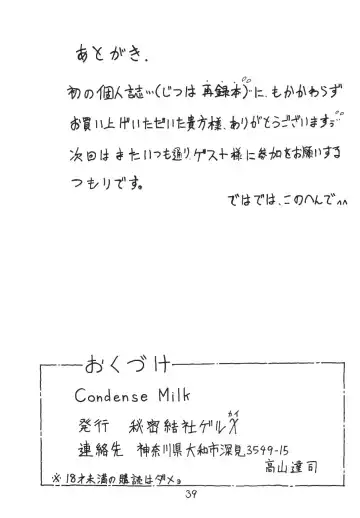 あとがき.
初の個人誌…(じつは再録本)に、もかかわらず
お買い上げいただいた貴方様、ありがとうございます。
次回はまたいつも通りゲスト様に参加をお願いする
つもりです。
ではでは、このへんで^^
おくづけ
Condense Milk
発行 秘密結社ゲルχ
カイ
連絡先 神奈川県大和市深見3549-15
高山達司
※18才未満の購読はダメョ
39